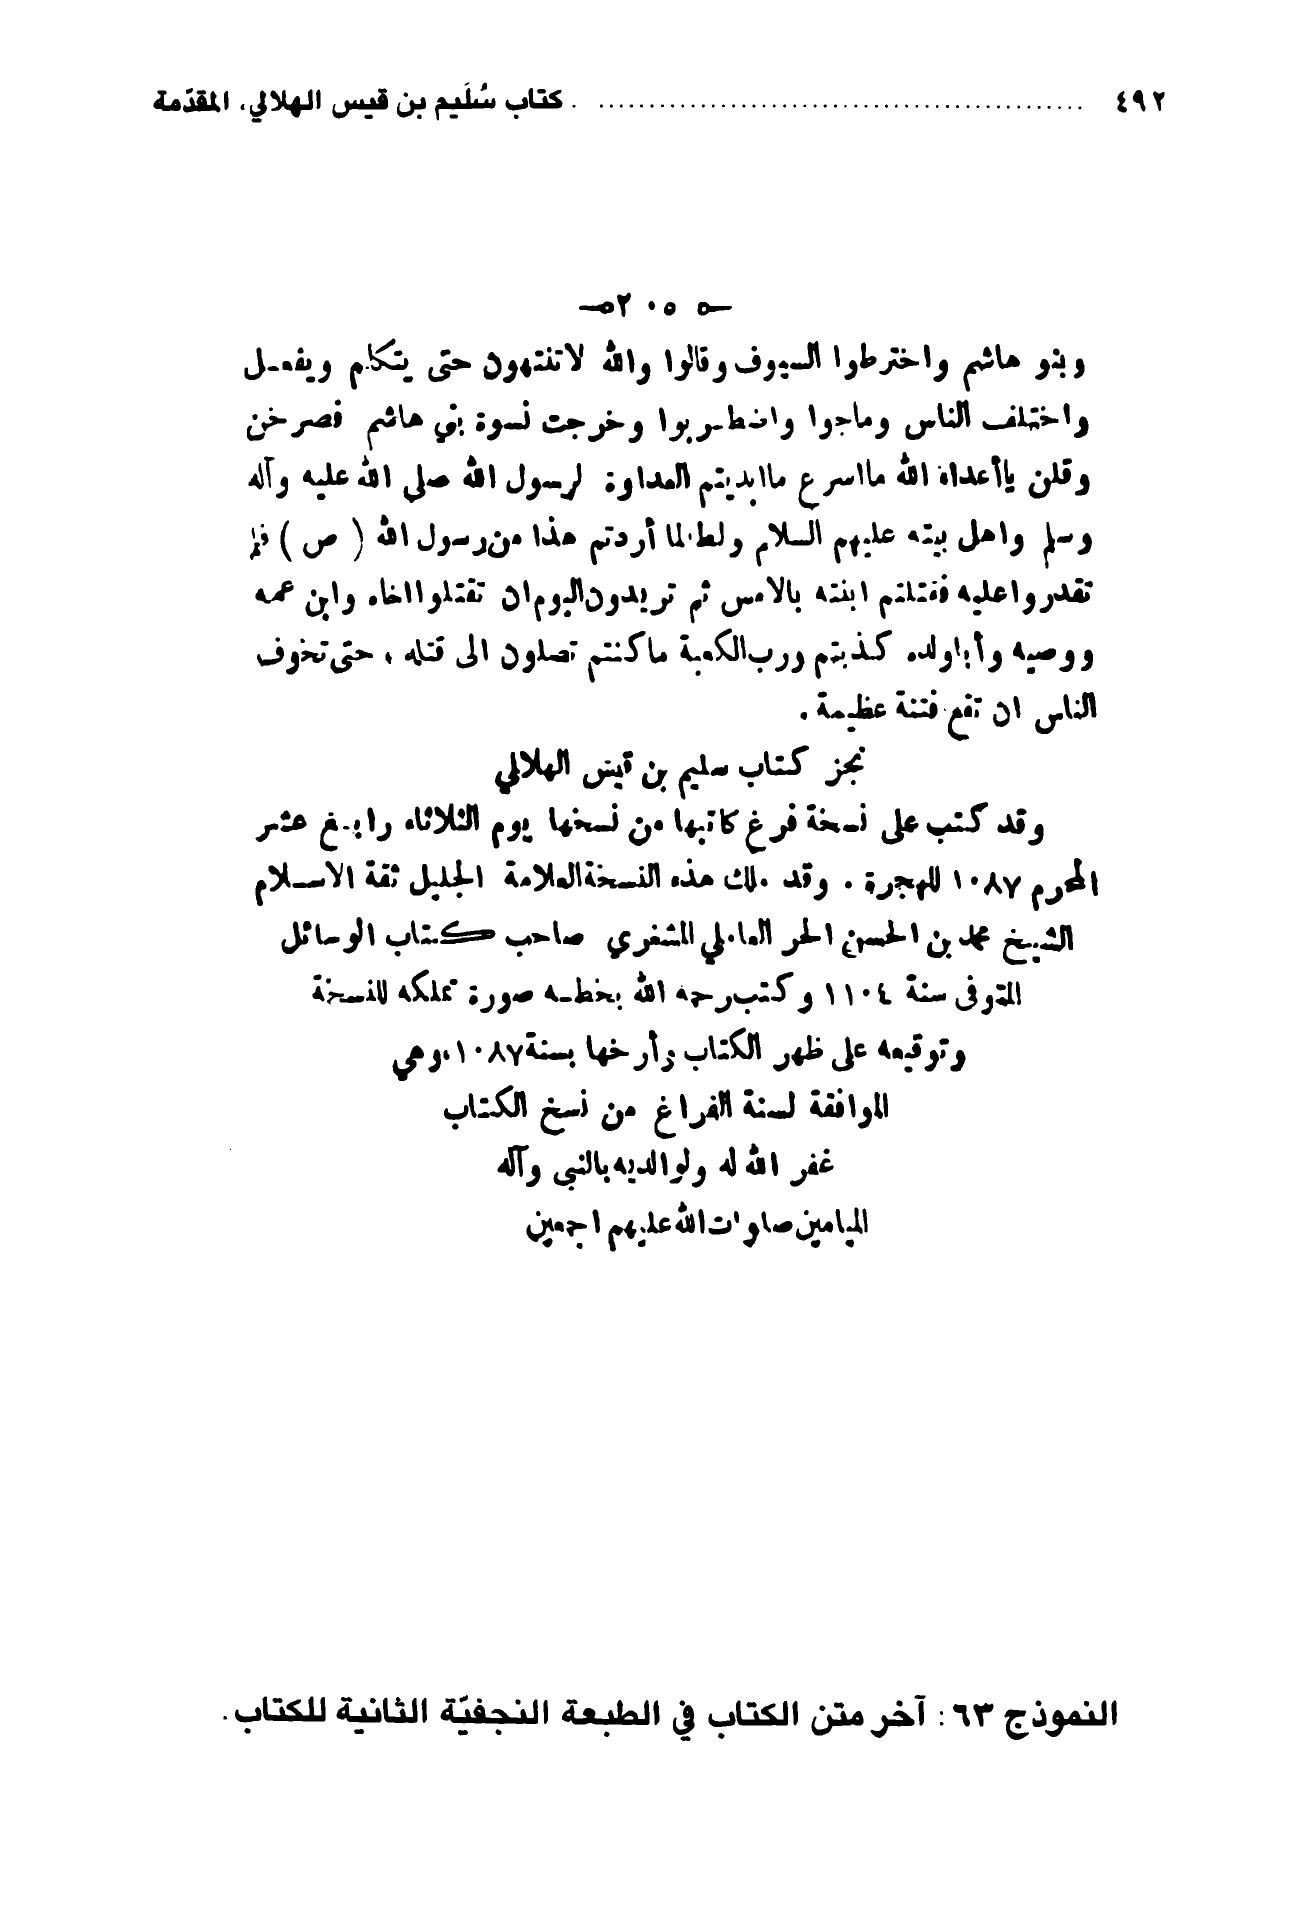 ٤٩٢ ........................ كتاب سُلَيم بن قيس الهلالي، المقدّمة
— ٢٠٥ —
وبنو هاشم واخترطوا السيوف وقالوا والله لا تنتهون حتى يتكلم ويفعل
واختلف الناس وماجوا واضطربوا وخرجت نسوة بني هاشم فصرخن
وقلن يا أعداء الله ما اسرع ما ابديتم العداوة لرسول الله صلى الله عليه وآله
وسلم واهل بيته عليهم السلام ولطالما أردتم هذا من رسول الله ( ص ) فلم
تقدروا عليه فقتلتم ابنته بالامس ثم تريدون اليوم ان تقتلوا اخاه وابن عمه
ووصيه وأبا ولده كذبتم ورب الكعبة ما كنتم تصلون الى قتله ، حتى تخوف
الناس ان تقع فتنة عظيمة .
نجز كتاب سليم بن قيس الهلالي
وقد كتب على نسخة فرغ كاتبها من نسخها يوم الثلاثاء رابع عشر
المحرم ١٠٨٧ للهجرة . وقد ملك هذه النسخة العلامة الجليل ثقة الاسلام
الشيخ محمد بن الحسن الحر العاملي المشغري صاحب كتاب الوسائل
المتوفى سنة ١١٠٤ وكتب رحمه الله بخطه صورة تملكه للنسخة
وتوقيعه على ظهر الكتاب وأرخها بسنة ١٠٨٧، وهي
الموافقة لسنة الفراغ من نسخ الكتاب
غفر الله له ولوالديه بالنبي وآله
الميامين صلوات الله عليهم اجمعين
النموذج ٦٣ : آخر متن الكتاب في الطبعة النجفيّة الثانية للكتاب.